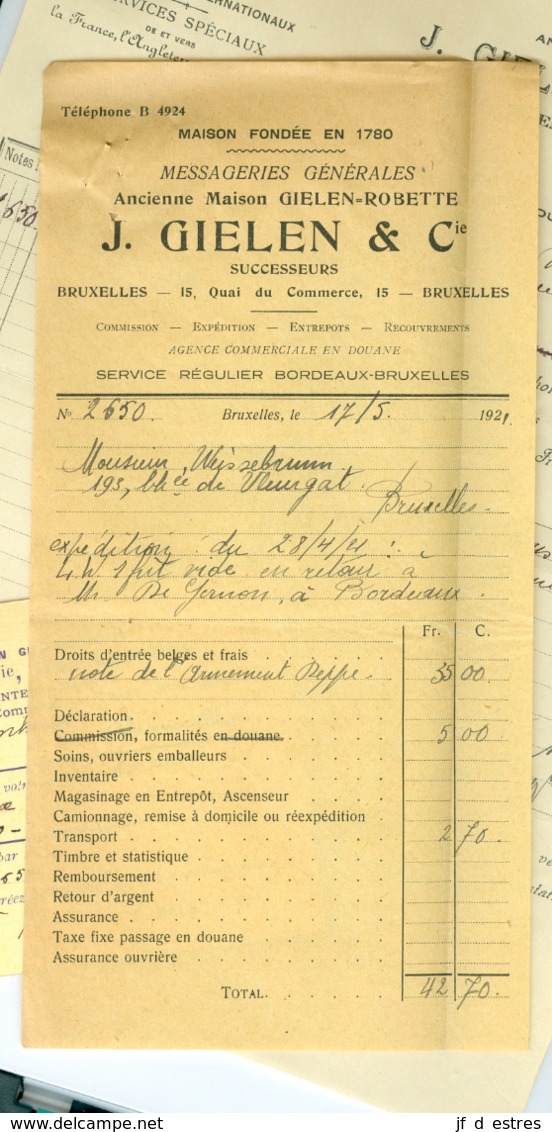 INTERNATIONAUX
SERVICES SPÉCIAUX
DE ET VERS
la France, l'Angleterre
J. GIEL
Notes
650
Téléphone B 4924
MAISON FONDÉE EN 1780
MESSAGERIES GÉNÉRALES
Ancienne Maison GIELEN=ROBETTE
J. GIELEN & Cie
SUCCESSEURS
BRUXELLES — 15, Quai du Commerce, 15 — BRUXELLES
COMMISSION — EXPÉDITION — ENTREPOTS — RECOUVREMENTS
AGENCE COMMERCIALE EN DOUANE
SERVICE RÉGULIER BORDEAUX-BRUXELLES
No 2650. Bruxelles, le 17/5. 1921.
Monsieur Weissebrunn.
193, Chée de Vleurgat.
Bruxelles.
expédition du 28/4/21 :
L.W. 1 fût vide en retour à
Mr De Gernon, à Bordeaux.
Fr. C.
Droits d'entrée belges et frais
note de l'Armement Deppe. 35 00
Déclaration
Commission, formalités en douane 5 00
Soins, ouvriers emballeurs
Inventaire
Magasinage en Entrepôt, Ascenseur
Camionnage, remise à domicile ou réexpédition
Transport 2 70
Timbre et statistique
Remboursement
Retour d'argent
Assurance
Taxe fixe passage en douane
Assurance ouvrière
TOTAL 42 70
jf d estres